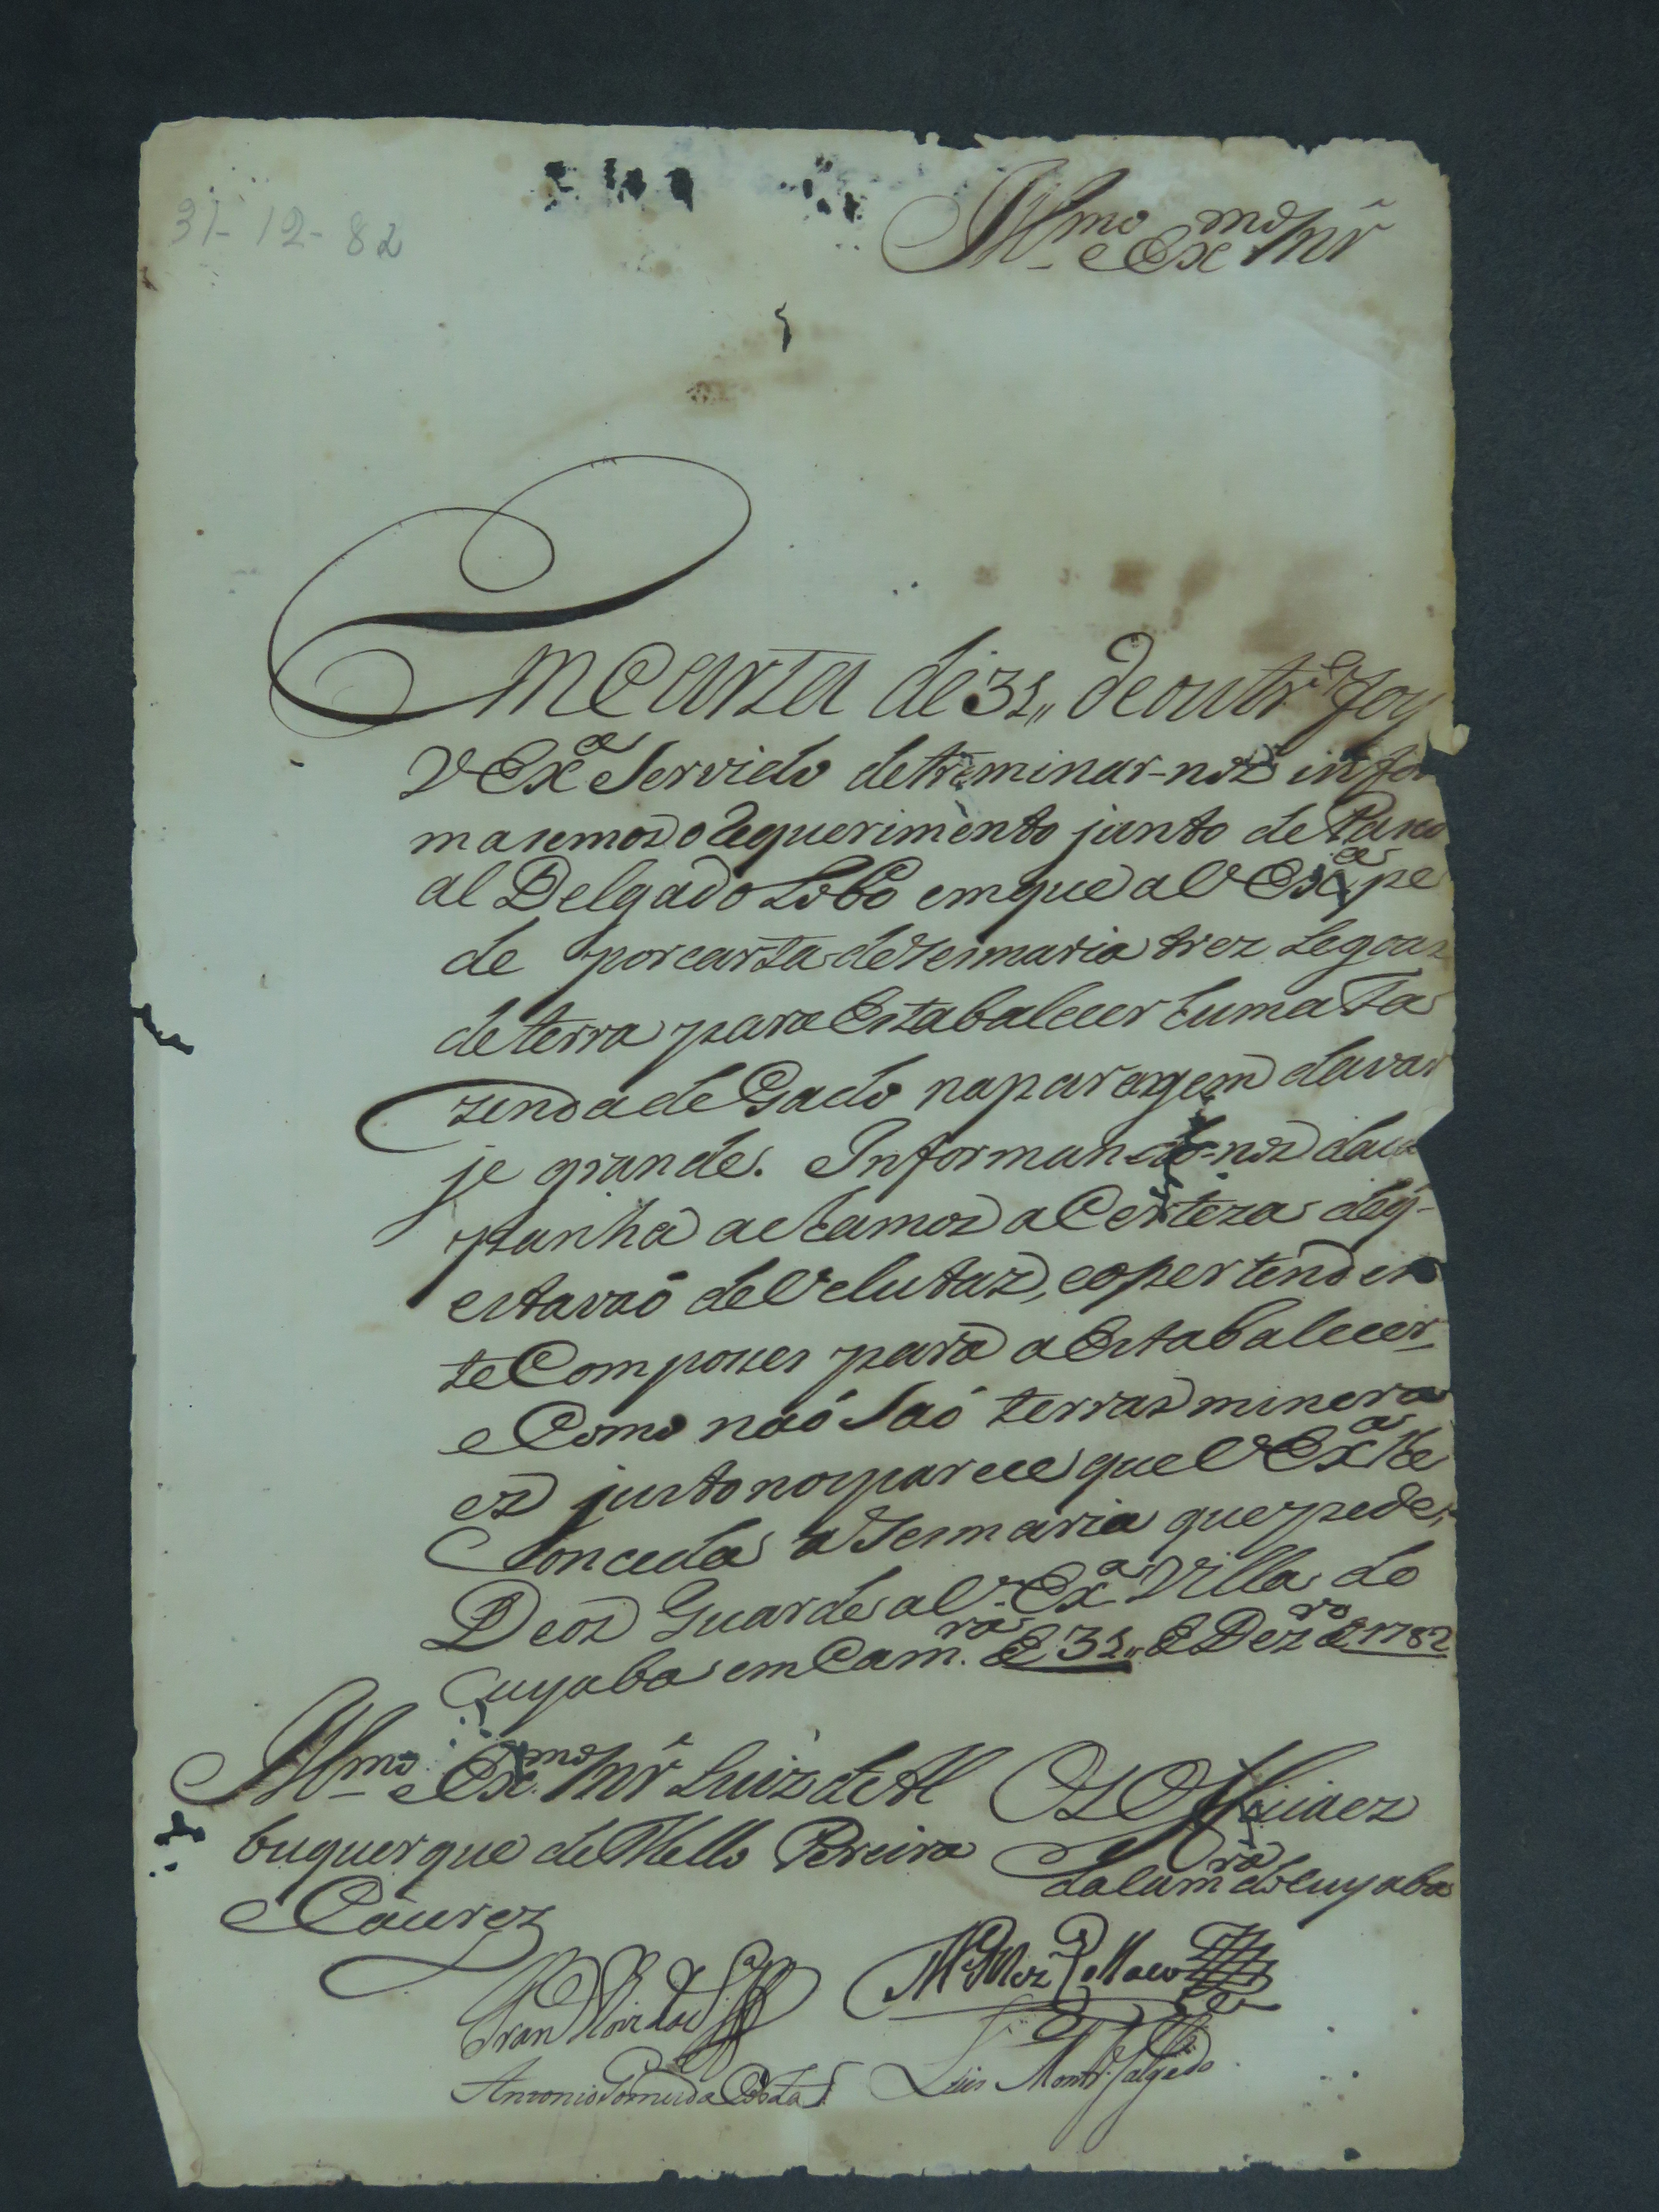 31-12-82
Illmo e Exmo Snr
Em Carta de 31,, de outr.º Foy
V Exca Servido detreminar-nos infor
masemos o Requerimento junto de Pasco
al Delgado Lobo em que a V Exca pe
de por carta de Sesmaria trez Legoas
de terra para Estabalecer huma Fa
zenda de Gado na paragem da var
je grande. Informando-nos da cam
panha achamos a Certeza de q̃
estavaó deVolutas, e o pertenden
te Com posses para a Estabalecer
e Como naó Saó terras minera
es justo nos parece que V Exca lhe
Conceda a Sesmaria que pede,
Deos Guarde a V. Exa Villa do
Cuyaba em Cam.ra de 31,, de Dezro de 1782
Illmo e Exmo Snr Luiz de Al
buquerque de Mello Pereira
e Cáceres
Os Officiaes
da Cam.ra do Cuyaba
Antonio da Costa
Luis Montr.º Salgado